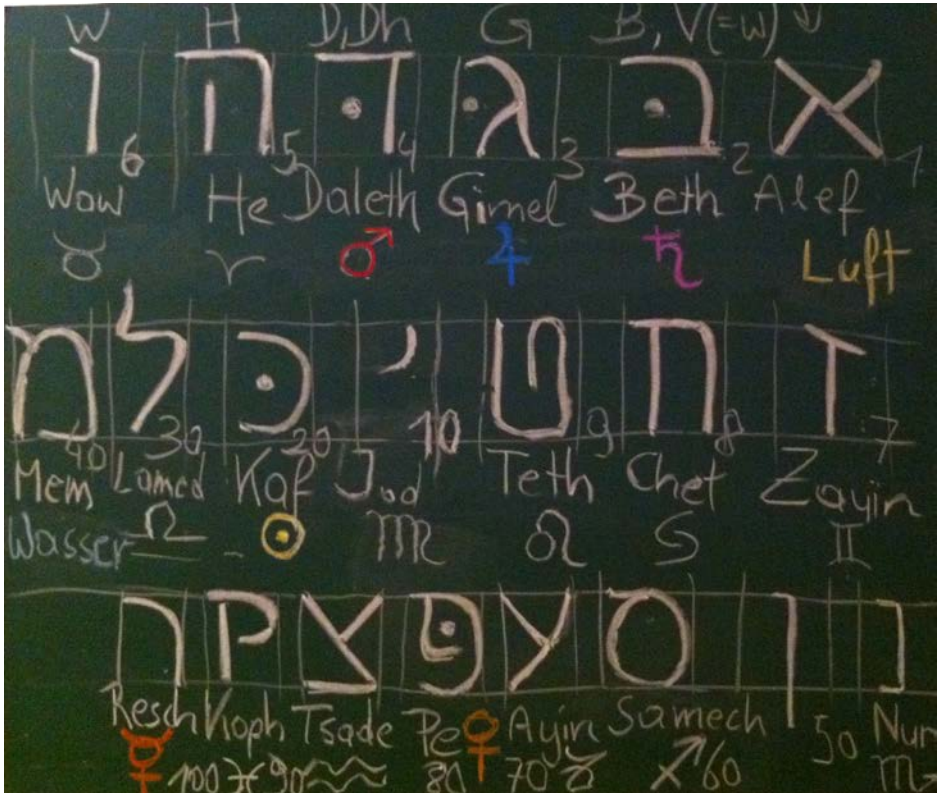 W H D, Dh G B, V(=w)
ו ה ד ג ב א
6 5 4 3 2 1
Wow He Daleth Gimel Beth Alef
♉ ♈ ♂ ♃ ♄ Luft
מ ל כ י ט ח ז
40 30 20 10 9 8 7
Mem Lamed Kaf Jod Teth Chet Zayin
Wasser ♎ ☉ ♍ ♌ ♋ ♊
ר ק צ פ ע ס ן נ
Resch Koph Tsade Pe ♀ Ayin Samech 50 Nun
☿ 100 ♓ 90 ♒ 80 70 ♑ ♐ 60 ♏